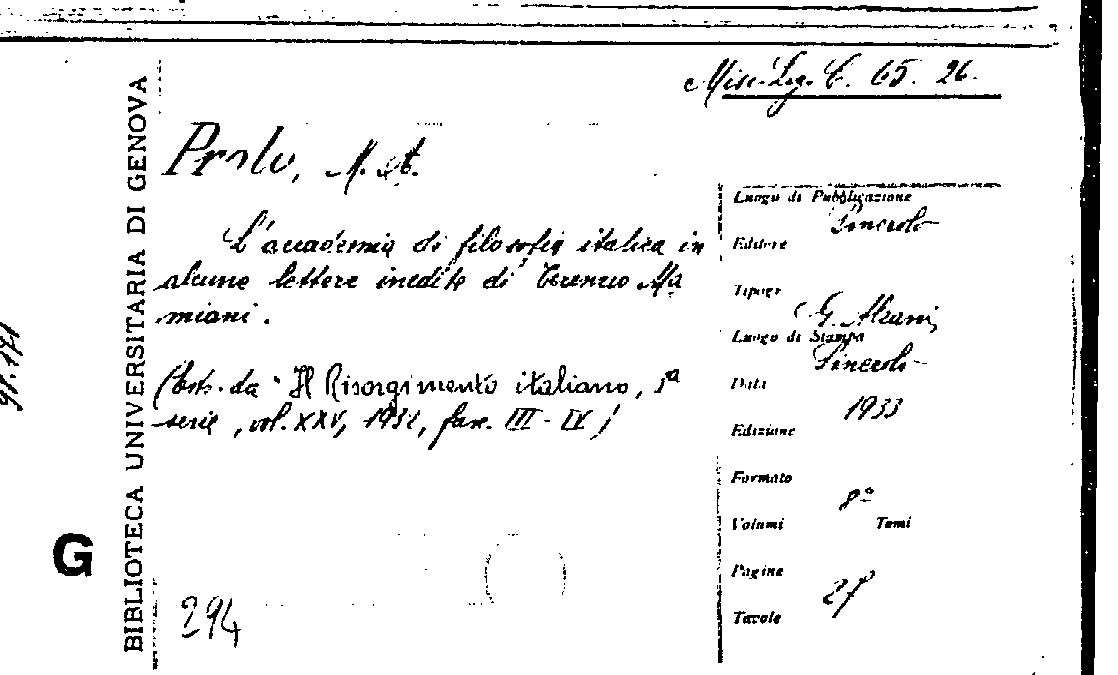 Misc. Leg. C. 65. 26.
BIBLIOTECA UNIVERSITARIA DI GENOVA
Prolo, M. A.
L'accademia di filosofia italica in
alcune lettere inedite di Terenzio Ma
miani.
(Estr. da "Il Risorgimento italiano, 1ª
serie, vol. XXV, 1932, fasc. III-IV)
G
294
Luogo di Pubblicazione
Pinerolo
Editore
Tipogr
G. Alzani
Luogo di Stampa
Pinerolo
Data
1933
Edizione
Formato
8º
Volumi Tomi
Pagine
Tavole